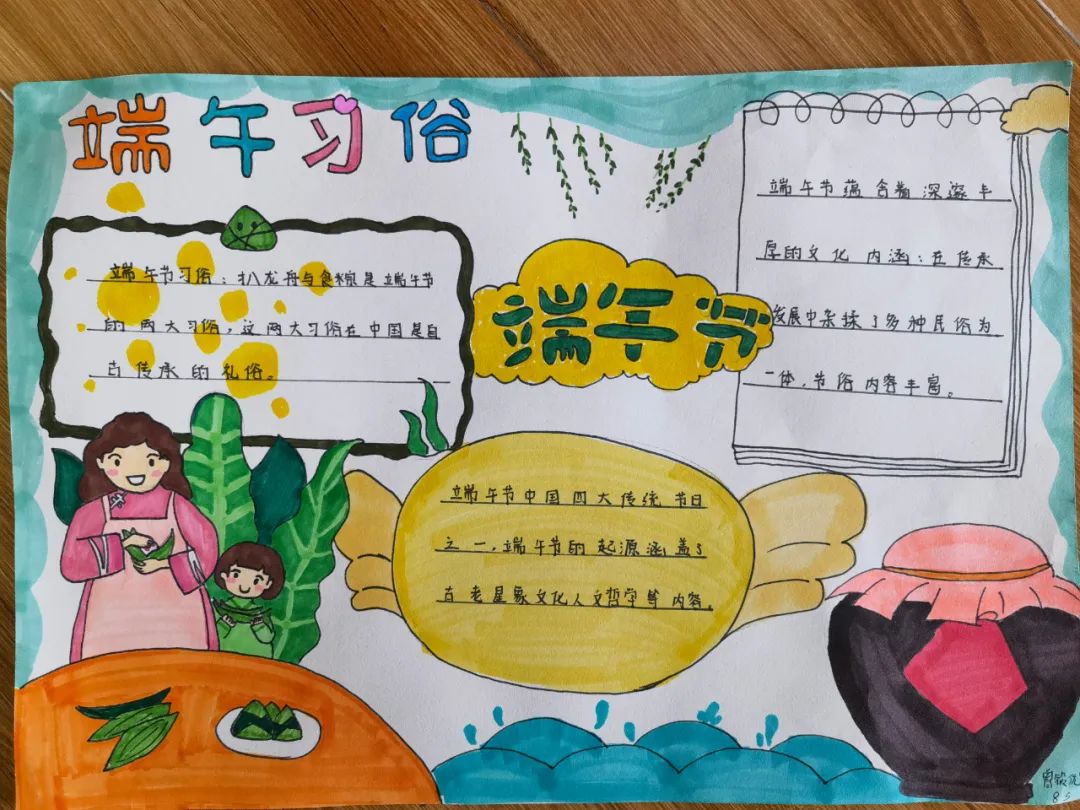 端午习俗
端午节习俗：扒龙舟与食粽是端午节
的两大习俗，这两大习俗在中国是自
古传承的礼俗。
端午节
端午节蕴含着深邃丰
厚的文化内涵：在传承
发展中杂揉了多种民俗为
一体，节俗内容丰富。
端午节中国四大传统节日
之一，端午节的起源涵盖了
古老星象文化人文哲学等内容。